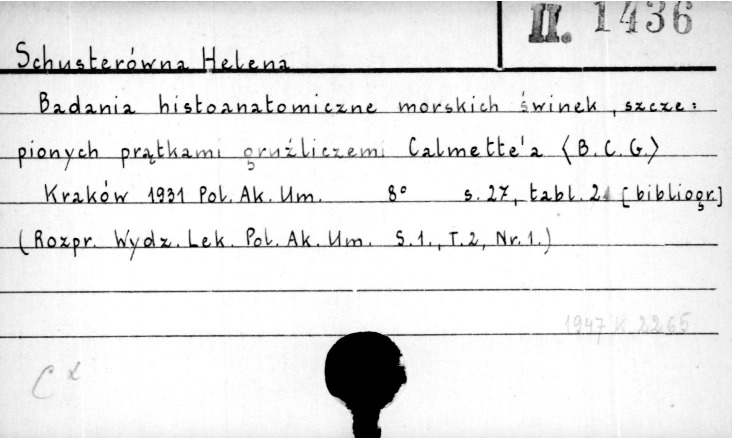 II. 1436
Schusterówna Helena
Badania histoanatomiczne morskich świnek, szcze=
pionych prątkami gruźliczemi Calmette'a (B.C.G.)
Kraków 1931 Pol. Ak. Um. 8° s. 27, tabl. 2. [bibliogr.]
(Rozpr. Wydz. Lek. Pol. Ak. Um. S. 1., T. 2, Nr. 1.)
1947 K 2265